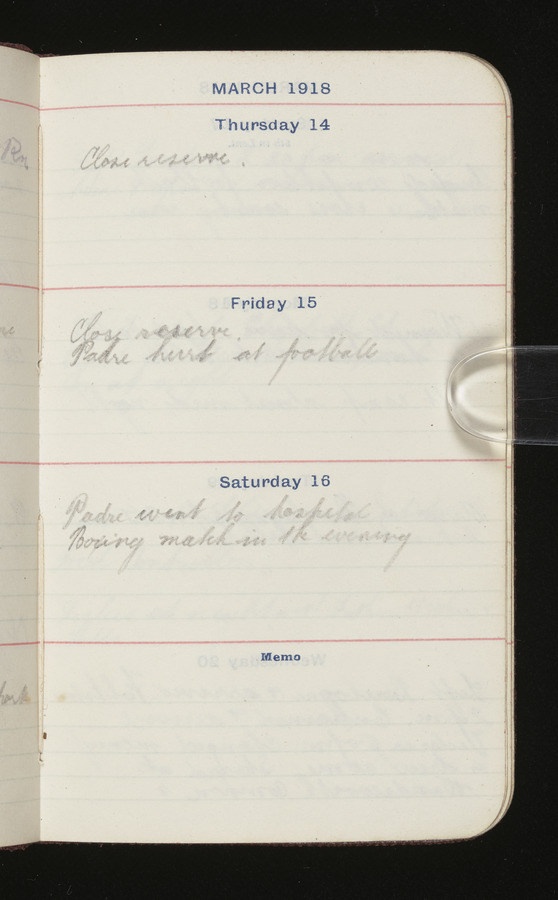 MARCH 1918
Thursday 14
Close reserve.
Friday 15
Close reserve.
Padre hurt at football
Saturday 16
Padre went to hospital
Boxing match in the evening
Memo